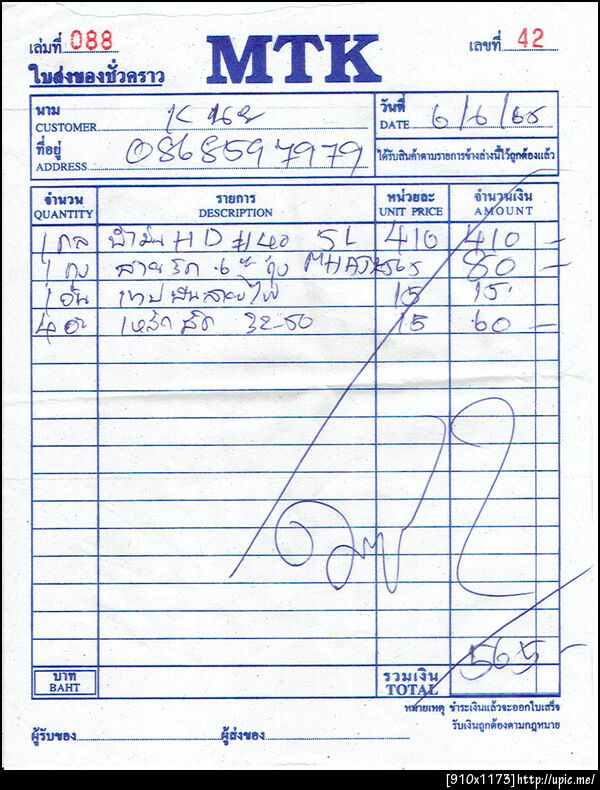 เล่มที่ 088
MTK
เลขที่ 42
ใบส่งของชั่วคราว
นาม
CUSTOMER
วันที่
DATE 6/6/
ที่อยู่
ADDRESS 0868597979
ได้รับสินค้าตามรายการข้างล่างนี้ไว้ถูกต้องแล้ว
จำนวน รายการ หน่วยละ จำนวนเงิน
QUANTITY DESCRIPTION UNIT PRICE AMOUNT
1 HD #40 5L 410 410 -
1 ถุง สายรัด 6" 80 -
1 อัน เทปพันสายไฟ 15 15 -
4 เหล็ก 32-50 15 60 -
565 -
บาท
BAHT
รวมเงิน
TOTAL
หมายเหตุ ชำระเงินแล้วจะออกใบเสร็จ
รับเงินถูกต้องตามกฎหมาย
ผู้รับของ ผู้ส่งของ
[910x1173]http://upic.me/